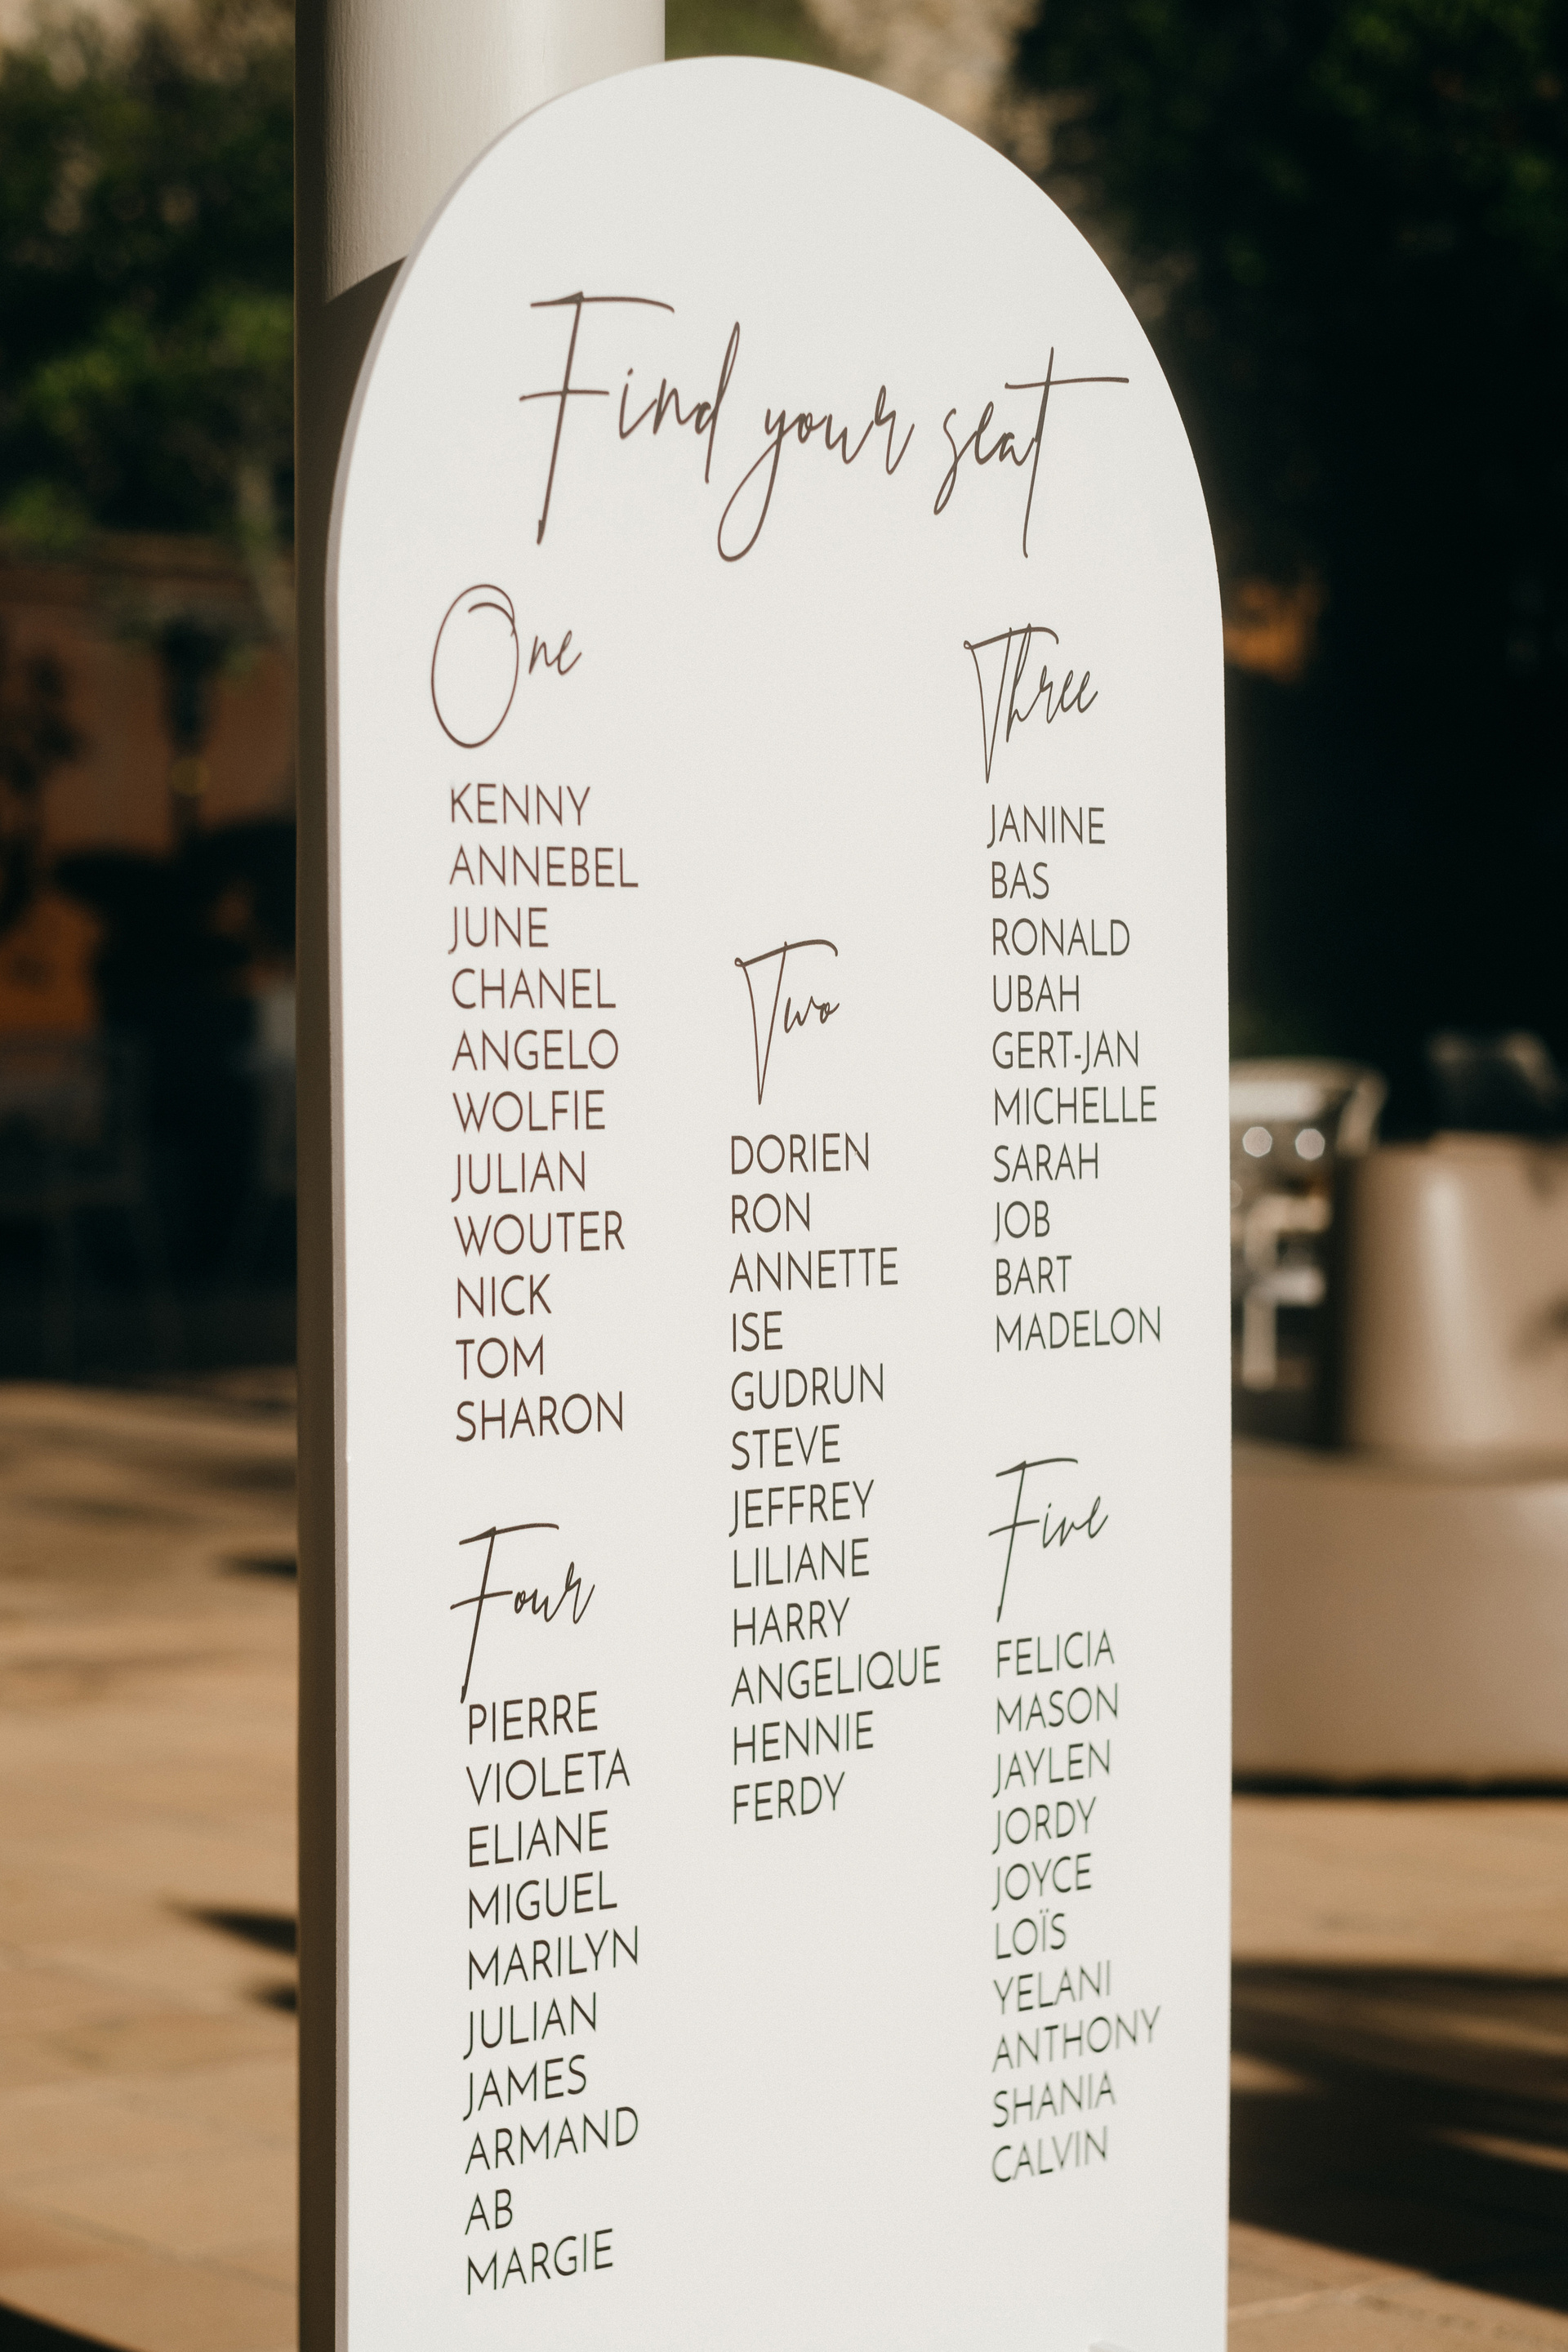 Find your seat
One
KENNY
ANNEBEL
JUNE
CHANEL
ANGELO
WOLFIE
JULIAN
WOUTER
NICK
TOM
SHARON
Two
DORIEN
RON
ANNETTE
ISE
GUDRUN
STEVE
JEFFREY
LILIANE
HARRY
ANGELIQUE
HENNIE
FERDY
Three
JANINE
BAS
RONALD
UBAH
GERT-JAN
MICHELLE
SARAH
JOB
BART
MADELON
Four
PIERRE
VIOLETA
ELIANE
MIGUEL
MARILYN
JULIAN
JAMES
ARMAND
AB
MARGIE
Five
FELICIA
MASON
JAYLEN
JORDY
JOYCE
LOÏS
YELANI
ANTHONY
SHANIA
CALVIN